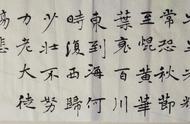 常恐秋節
至焜黄華
葉衰百川
東到海何
時復西歸
少壯不努
力老大徒
悲